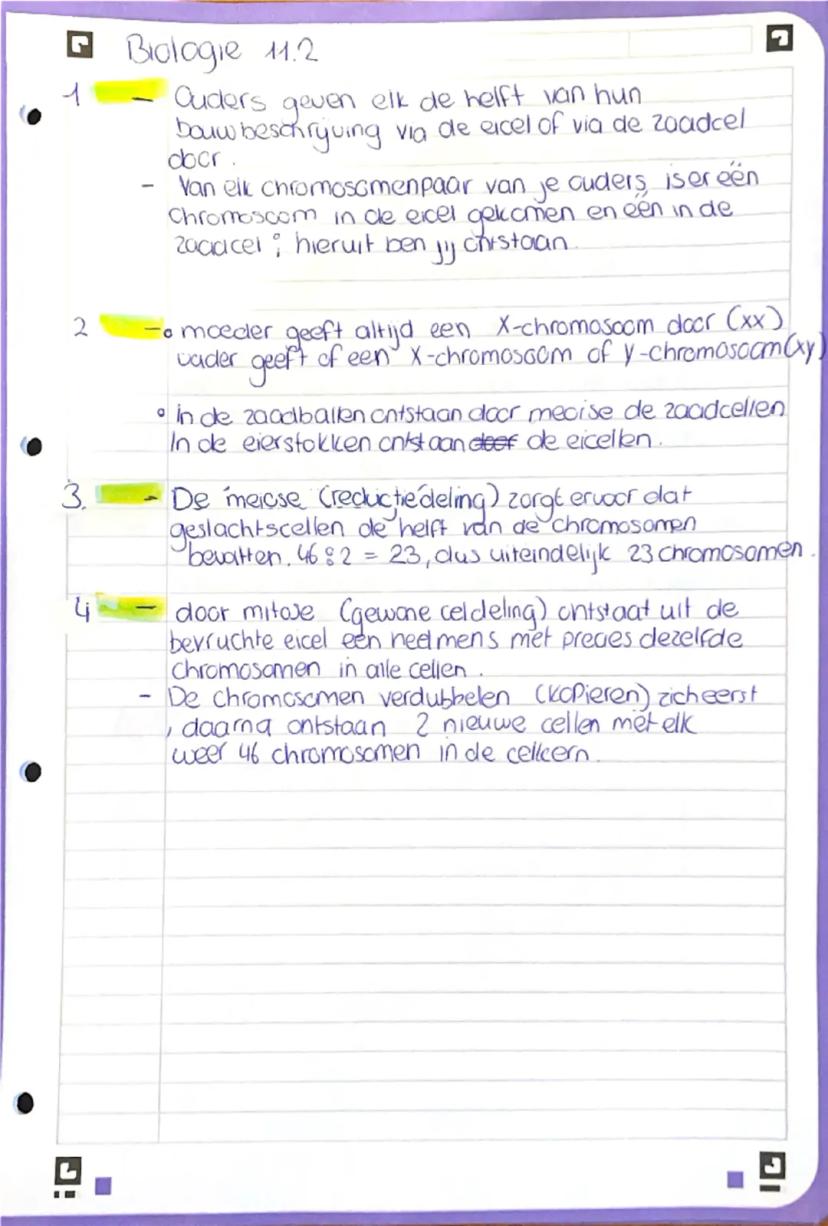 Biologie 11.2
1 - Ouders geven elk de helft van hun
bouwbeschrijving via de eicel of via de zaadcel
door.
- Van elk chromosomenpaar van je ouders is er één
chromosoom in de eicel gekomen en één in de
zaadcel; hieruit ben jij ontstaan.
2 - o moeder geeft altijd een X-chromosoom door (xx)
vader geeft of een X-chromosoom of y-chromosoom (xy)
o in de zaadballen ontstaan door meoise de zaadcellen
In de eierstokken ontstaan door de eicellen.
3. - De meiose (reductiedeling) zorgt ervoor dat
geslachtscellen de helft van de chromosomen
bevatten. 46 : 2 = 23, dus uiteindelijk 23 chromosomen.
4 - door mitose (gewone celdeling) ontstaat uit de
bevruchte eicel een heel mens met precies dezelfde
chromosomen in alle cellen.
- De chromosomen verdubbelen (kopieren) zich eerst
, daarna ontstaan 2 nieuwe cellen met elk
weer 46 chromosomen in de celkern.